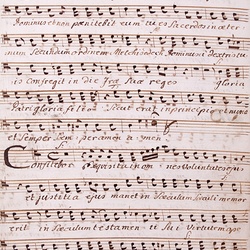 Dominus et non penitebit eum tu es Sacerdos in æter
num Secundum ordinem Melchisedech Dominus a dextris tu
is Confregit in die Iræ suæ reges gloria
Patri gloria filio Sicut erat in principio et nunc
et Semper Sem per amen a men
Confitebor
et justitia ejus manet in Sæculum Sæculi memor
erit in Sæculum testamen ti Sui Virtutem